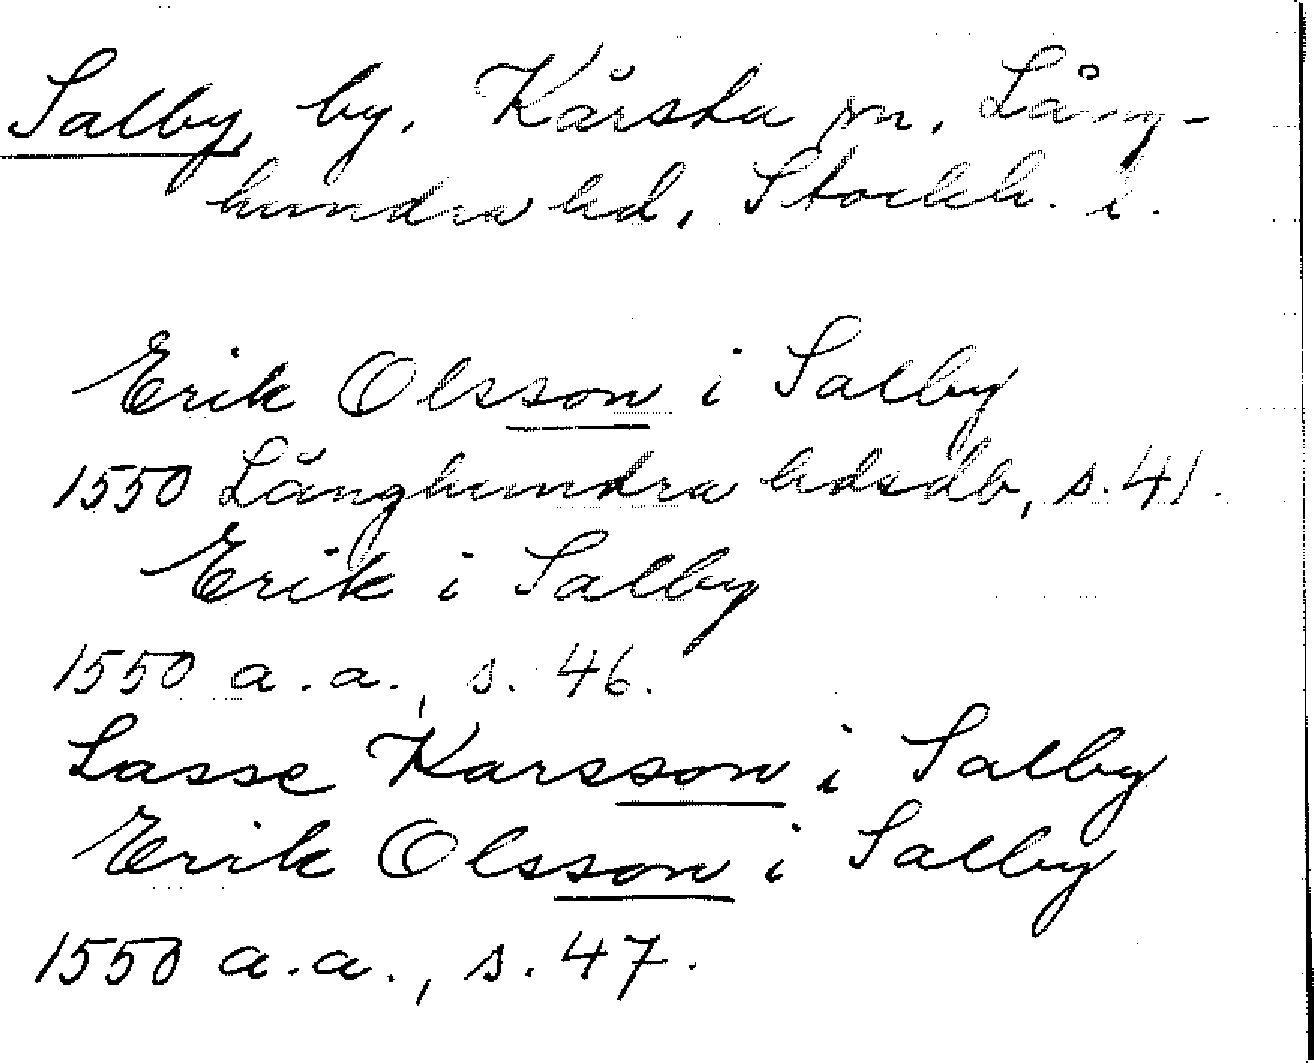 Salby, by, Kårsta sn, Lång-
hundra hd, Stockh. l.
Erik Olsson i Salby
1550 Långhundra hdsdb, s. 41.
Erik i Salby
1550 a.a., s. 46.
Lasse Karsson i Salby
Erik Olsson i Salby
1550 a.a., s. 47.